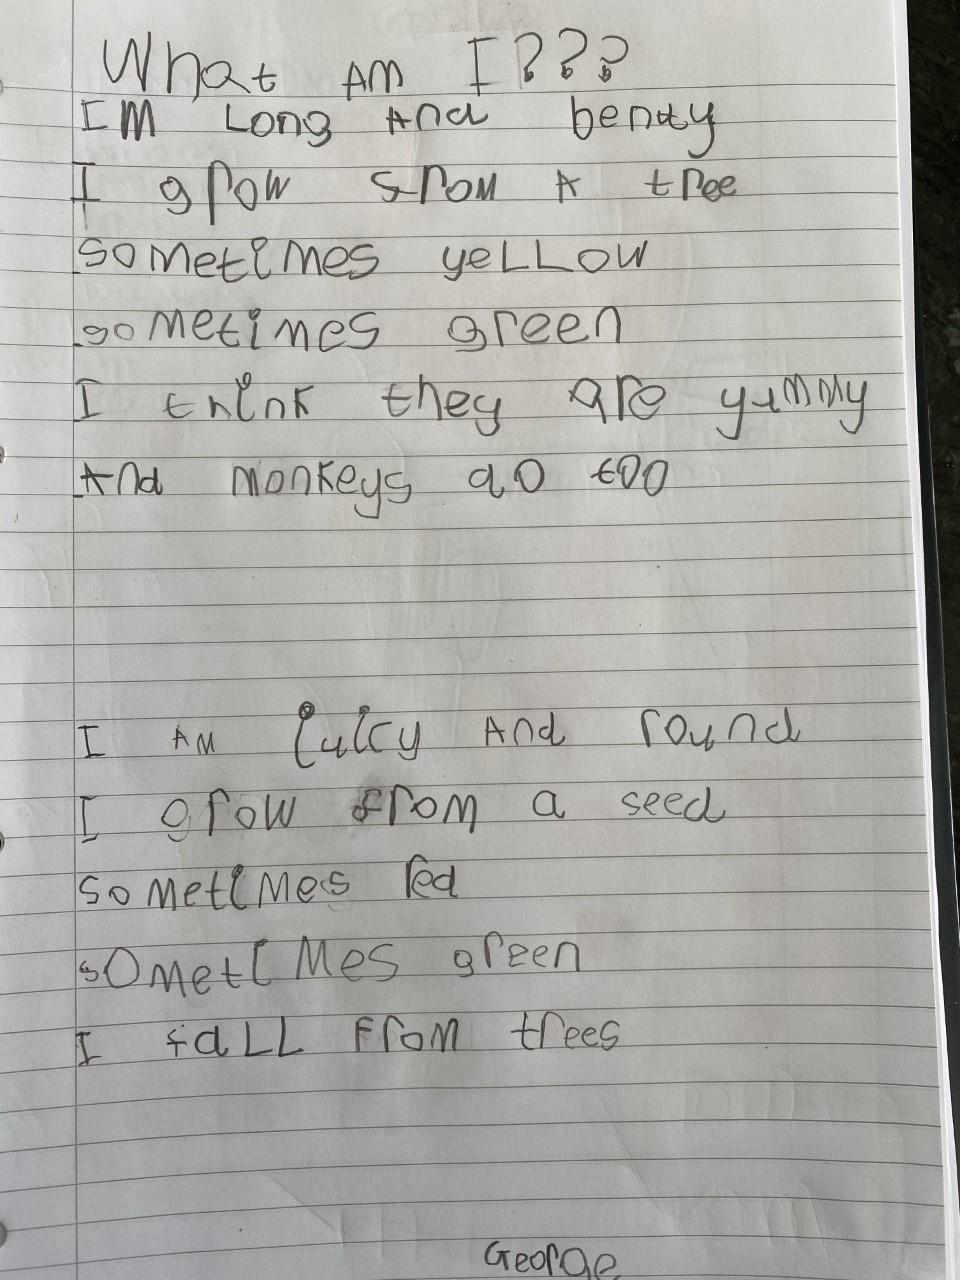 What AM I???
IM Long And bendy
I grow from A tree
sometimes yeLLow
sometimes green
I think they are yummy
And monkeys do too
I AM juicy And round
I grow from a seed
sometimes red
sometimes green
I faLL From trees
George